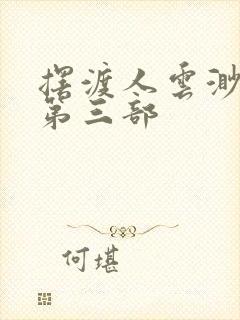 摆渡人雲渺
第三部
何堪